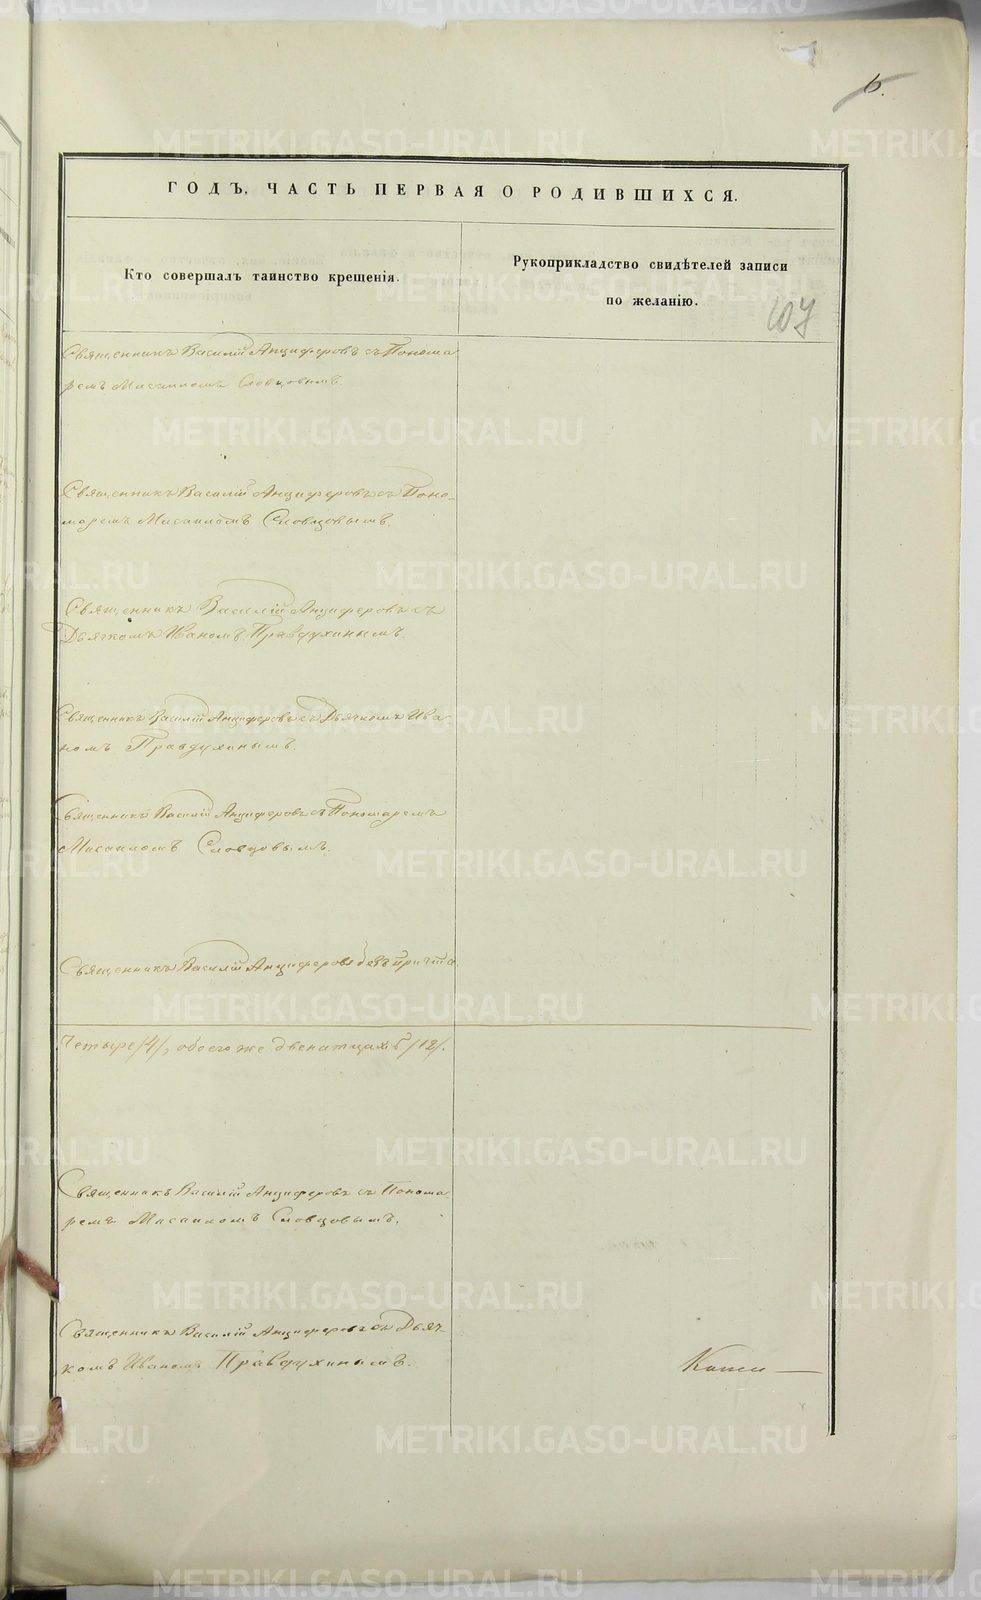 6.
ГОДЪ, ЧАСТЬ ПЕРВАЯ О РОДИВШИХСЯ.
Кто совершалъ таинство крещенія.
Рукоприкладство свидѣтелей записи
по желанію.
107
Священникъ Василій Анциферовъ съ Понома
ремъ Мисаиломъ Словцовымъ.
Священникъ Василій Анциферовъ съ Поно-
маремъ Мисаиломъ Словцовымъ.
Священникъ Василій Анциферовъ съ
Дьячкомъ Иваномъ Правдухинымъ.
Священникъ Василій Анциферовъ съ Дьячкомъ Ива
номъ Правдухинымъ.
Священникъ Василій Анциферовъ съ Пономаремъ
Мисаиломъ Словцовымъ.
Священникъ Василій Анциферовъ безъ причта
Четыре /4/, обоего же двенатцать /12/.
Священникъ Василій Анциферовъ съ Понома
ремъ Мисаиломъ Словцовымъ.
Священникъ Василій Анциферовъ съ Дьяч-
комъ Иваномъ Правдухинымъ.
METRIKI.GASO-URAL.RU